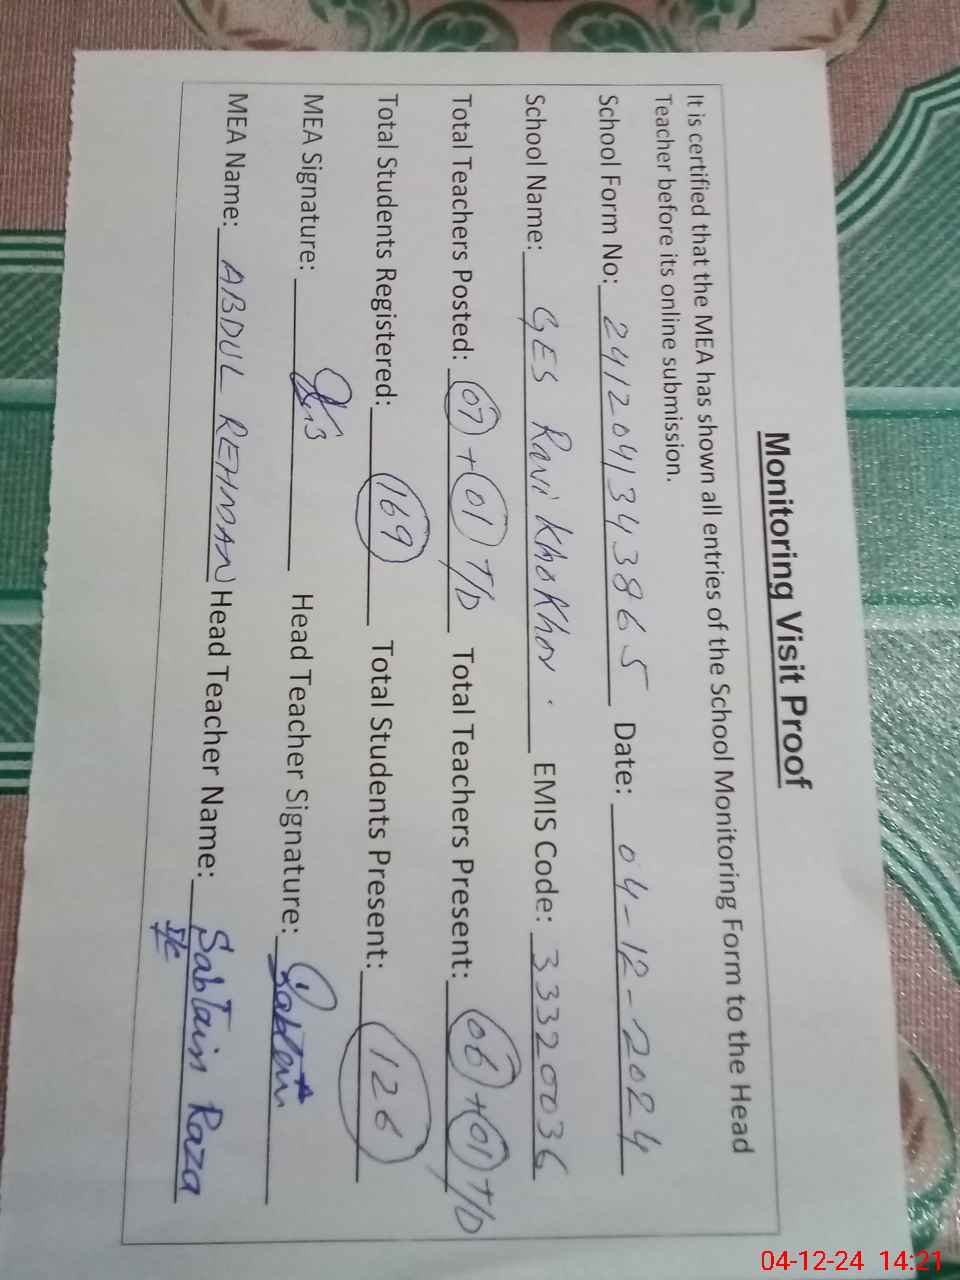 Monitoring Visit Proof
It is certified that the MEA has shown all entries of the School Monitoring Form to the Head
Teacher before its online submission.
School Form No: 2412041343865 Date: 04-12-2024
School Name: GES Ravi Khokhar. EMIS Code: 33320036
Total Teachers Posted: 07 + 01 T/D Total Teachers Present: 06 + 01 T/D
Total Students Registered: 169 Total Students Present: 126
MEA Signature: Head Teacher Signature: Sabtain
MEA Name: ABDUL REHMAN Head Teacher Name: Sabtain Raza
I/C
04-12-24 14:21